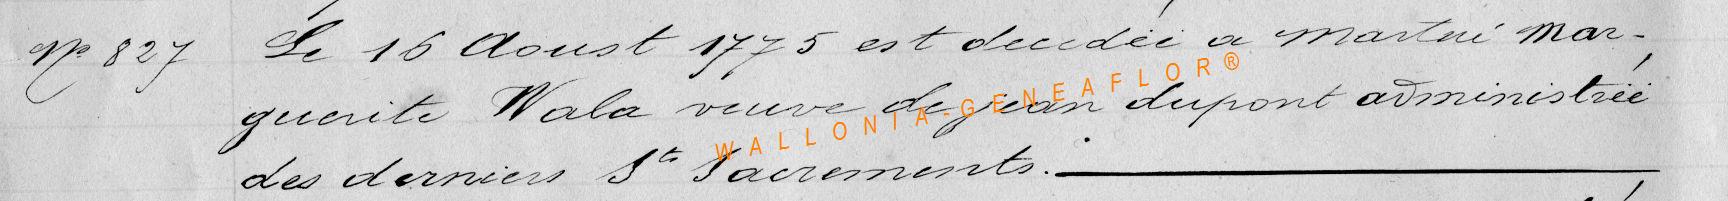 N° 827 Le 16 Aoust 1775 est decedéé a Martué Mar-
guerite Wala veuve de jean dupont administréé
des derniers Sts Sacrements.
WALLONIA-GENEAFLOR®